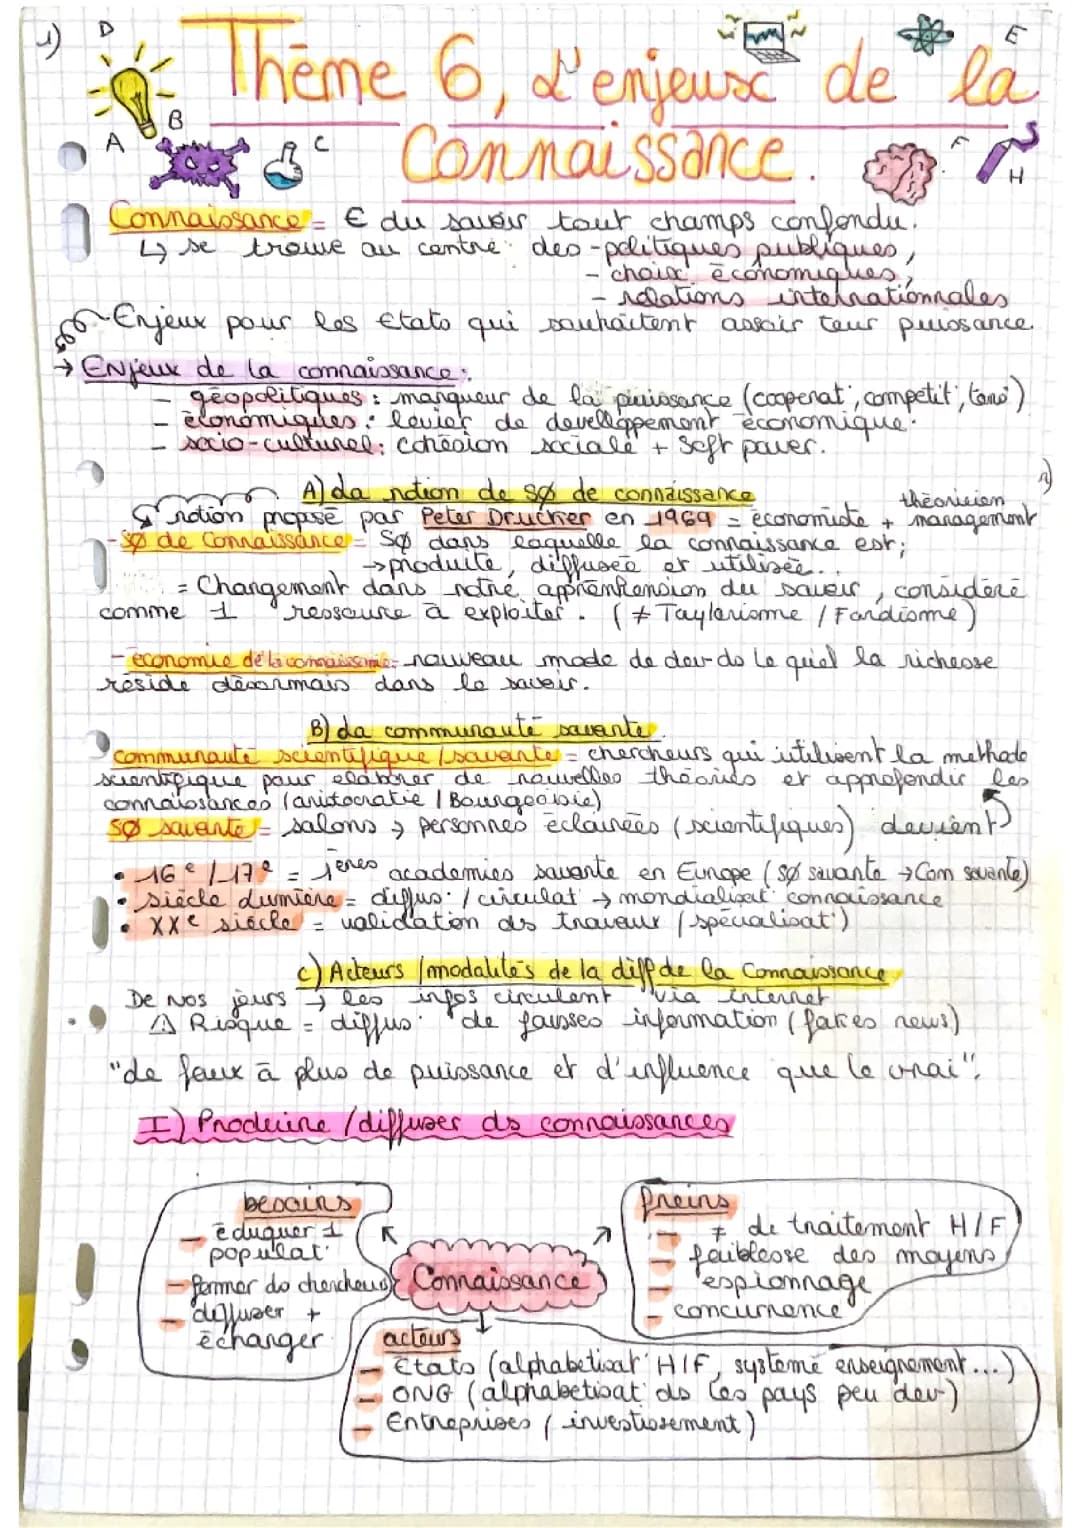 1)
D
E
A
B
C
F
H
Thème 6, L'enjeux de la
Connaissance.
Connaissance = € du savoir tout champs confondu.
↳ se trouve au centre des - politiques publiques,
- choix économiques,
- relations internationnales
Enjeux pour les Etats qui souhaitent assoir leur puissance.
→ Enjeux de la connaissance :
- géopolitiques : marqueur de la puissance (cooperat°, competit°, tens°)
- économiques : levier de developpement économique.
- socio-culturel : cohésion sociale + Soft power.
2)
A) La notion de sø de connaissance
notion proposé par Peter Drucker en 1969 = économiste + théoricien management
- sø de connaissance = Sø dans laquelle la connaissance est ;
→ produite, diffusée et utilisée..
= Changement dans notre appréhension du savoir, considéré
comme 1 ressource à exploiter. (≠ Taylorisme / Fordisme)
- économie de la connaissance : nouveau mode de dev do le quel la richesse
réside désormais dans le savoir.
B) La communauté savante
communauté scientifique / savante = chercheurs qui utilisent la methode
scientifique pour elaborer de nouvelles théories et approfondir les
connaissances (aristocratie / Bourgeoisie)
sø savante = salons → personnes éclairées (scientifiques) devient
• 16e / 17e = 1ères academies savante en Europe (sø savante → Com savante)
• siècle Lumière = diffus° / circulat° → mondialisat° connaissance
• XXe siècle = validation ds travaux (spécialisat°)
C) Acteurs / modalités de la diff de la Connaissance
De nos jours → les infos circulent via internet
⚠ Risque = diffus° de fausses information (fakes news)
"de faux à plus de puissance et d'influence que le vrai".
I) Produire / diffuser ds connaissances
besoins
- éduquer 1
populat°
- former do chercheurs
- diffuser +
échanger
Connaissance
freins
- ≠ de traitement H/F
- faiblesse des moyens
- espionnage
- concurrence
acteurs
- Etats (alphabetisat° H/F, système enseignement...)
- ONG (alphabetisat° ds les pays peu dev)
- Entreprises (investissement)